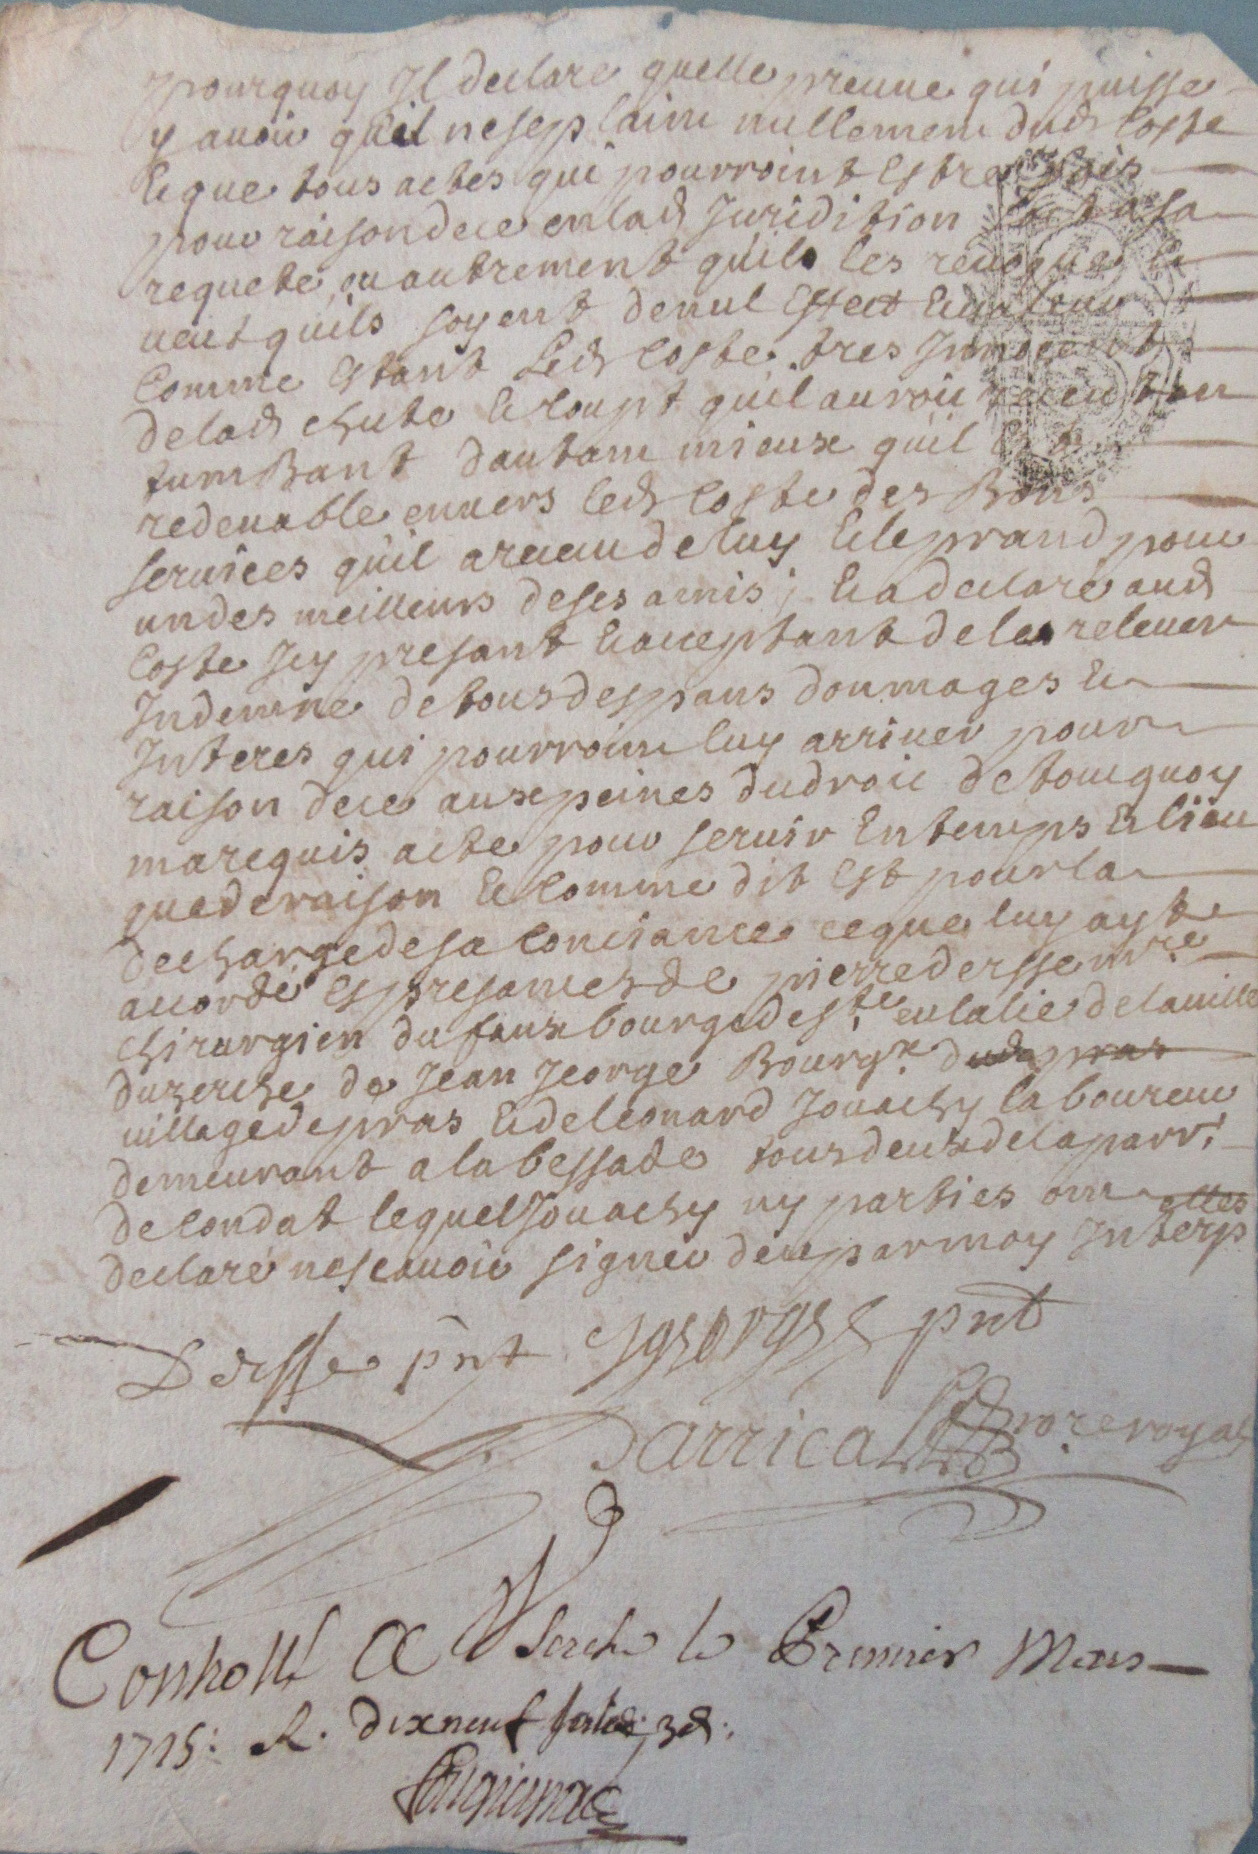 pourquoy Il declare quelle preuue qui puisse
y auoir quil nesep laint nullement dud Coste
Et que tous actes qui pourroint Estre fais
pour raison de ce en lad Juridition a sa
requete ou autrement quil les reuoque Et
ueut quils soyent de nul Effect Et ualeur
Comme Estant Led Coste tres Innocent
de lad chute Et coupt quil auroit receu En
tumBant dautant mieux quil Est
redeuable enuers led Coste des Bons
seruices quil a receu de luy Et le prand pour
un des meilleurs de ses amis ; Et a declare aud
Coste Icy presant Et acceptant de le releuer
Indemne de tous despans doumages Et
Interes qui pourroint luy arriuer pour
raison de ce aux peines du droit de tout quoy
ma requis acte pour seruir En temps Et lieu
que de raison Et Comme dit Est pour la
decharge de sa Consiance ce que luy ay
accorde Es presances de pierre dersse mre
chirurgien du faux bourg de ste eulalie de la uille
duzerche de Jean Jeorge Bourgx dud pras
uillage de pras Et de leonard Jouachy laboureur
demeurant a la bessade tous deux de la parr
de Condat lequel Jouachy ny parties ont elles
declare ne scauoir signer de ce par moy Interp
Dersse pnt Jgeorge pnt
Darrica nore royal
Controllé A Userche le Premier Mars
1715: R. dix neuf sols 3d.